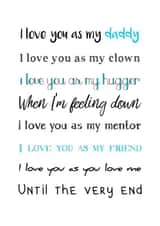 I love you as my daddy
I love you as my clown
i love you as my hugger
When I'm feeling down
I love you as my mentor
I LOVE YOU AS MY FRIEND
I love you as you love me
UNTIL THE VERY END